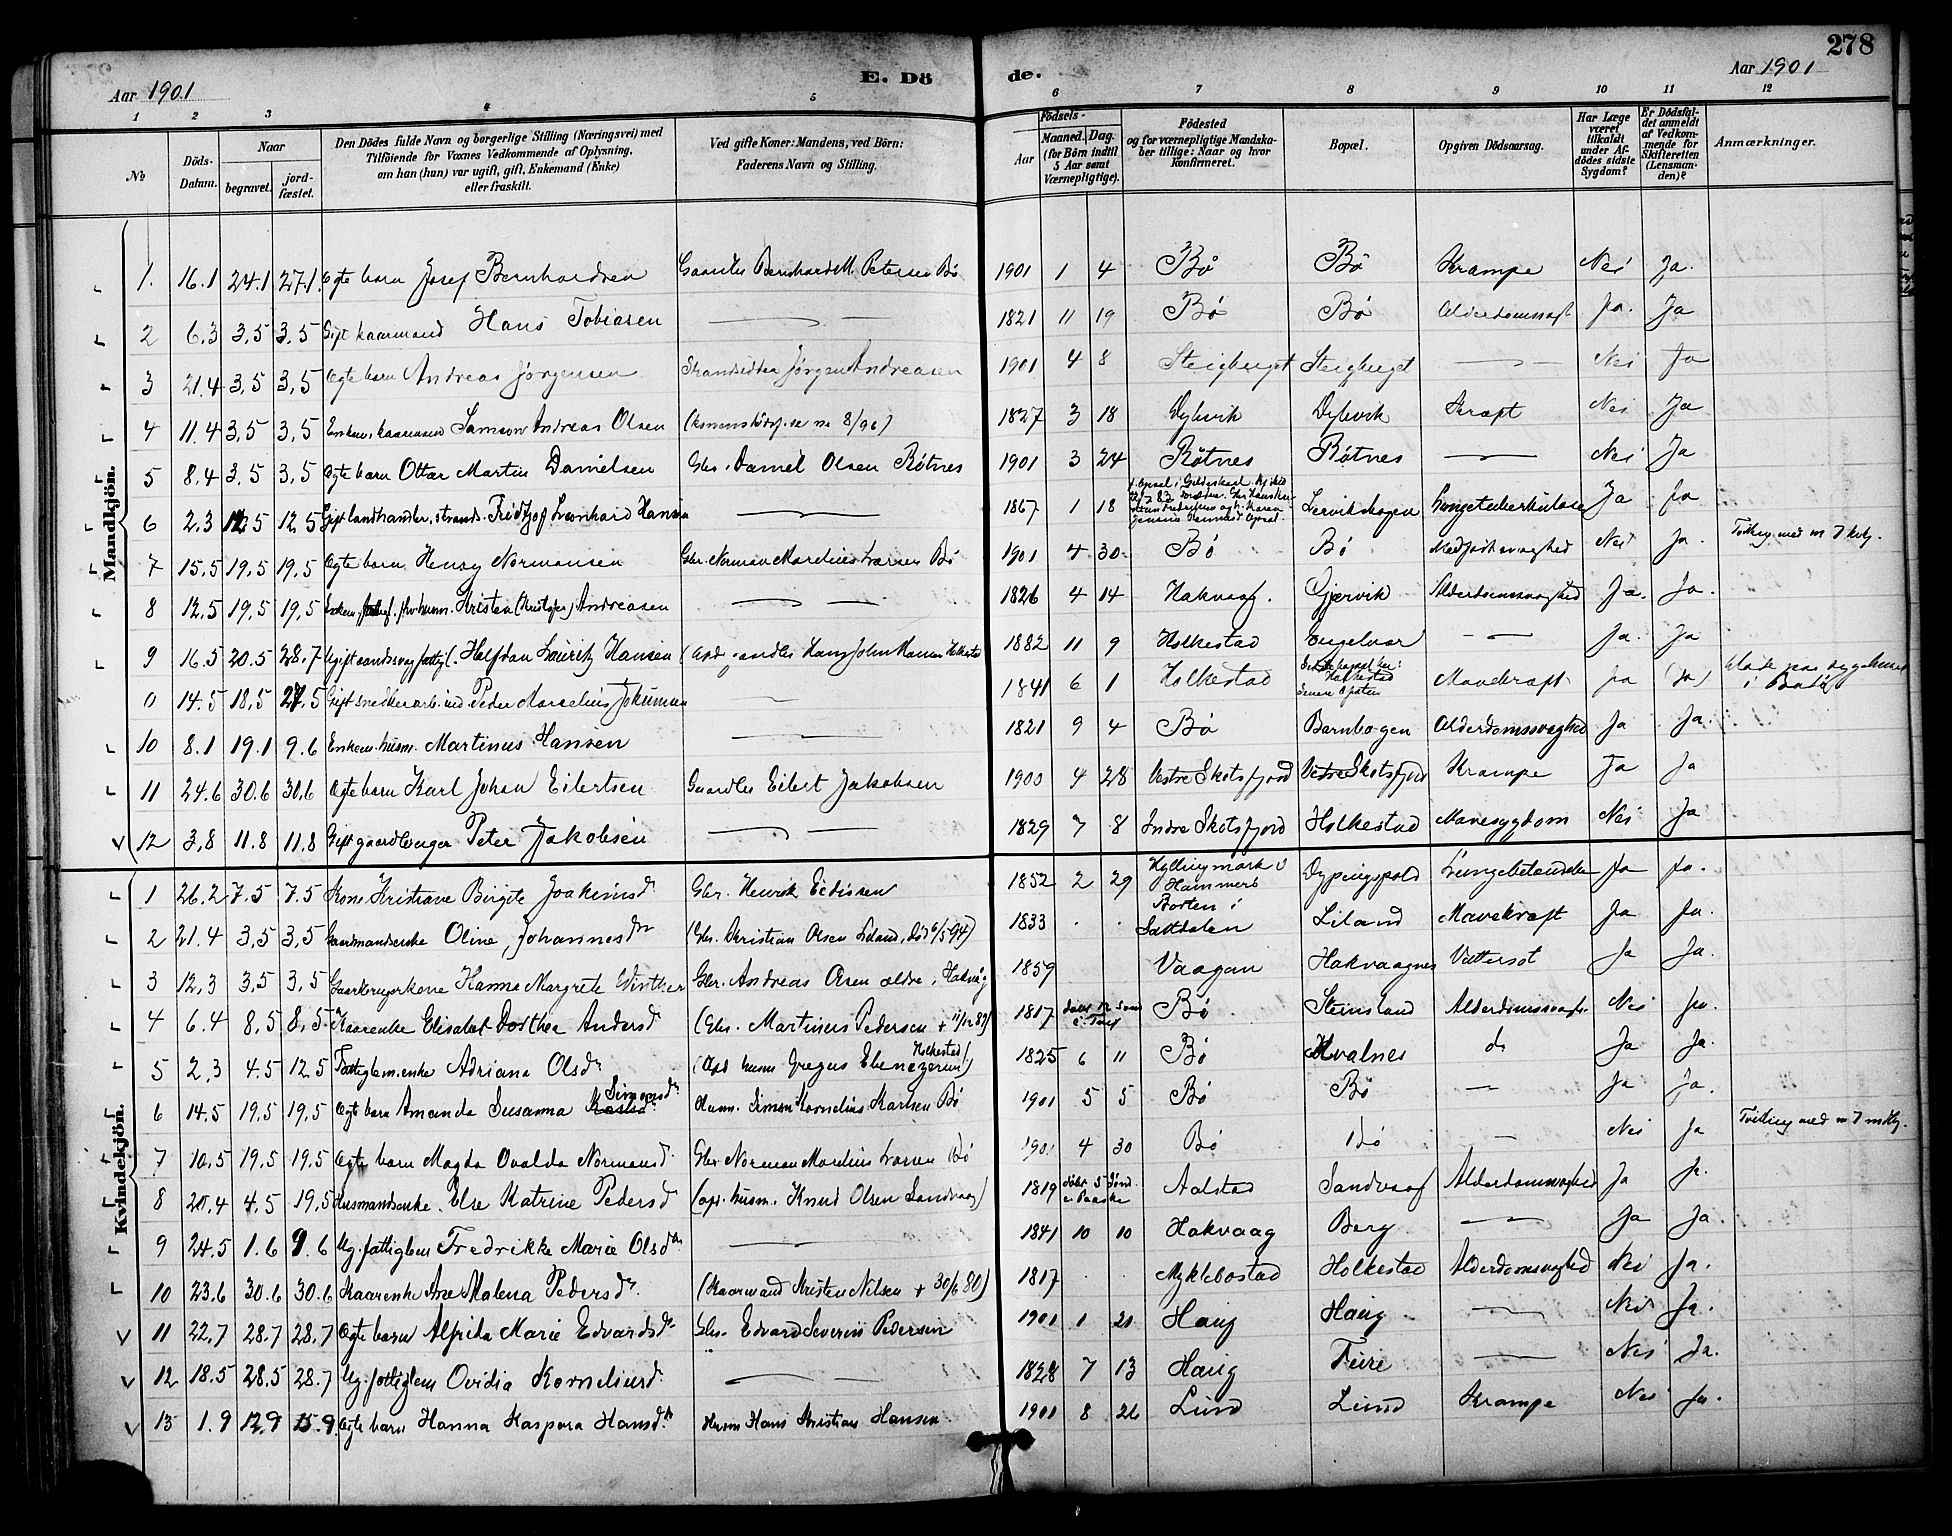 278
Aar 1901
E. Dö
de.
Aar 1901
1 2 3 4 5 6 7 8 9 10 11 12
№
Döds-Datum.
Naar
begravet.
jordfæstet.
Den Dödes fulde Navn og borgerlige Stilling (Næringsvei) med
Tilföiende for Voxnes Vedkommende af Oplysning,
om han (hun) var ugift, gift, Enkemand (Enke)
eller fraskilt.
Ved gifte Koner: Mandens, ved Börn:
Faderens Navn og Stilling.
Födsels-
Aar
Maaned. Dag.
(for Börn indtil
5 Aar samt
Værnepligtige).
Födested
og for værnepligtige Mandska-
ber tillige: Naar og hvor
Konfirmeret.
Bopæl.
Opgiven Dödsaarsag.
Har Læge
været
tilkaldt
under Af-
dödes sidste
Sygdom?
Er Dödsfal-
det anmeldt
af Vedkom-
mende for
Skifteretten
(Lensman-
den)?
Anmærkninger.
Mandkjön.
1. 16.1 24.1 27.1. Ægte barn Josef Bernhardsen Gaardbr Bernhard M. Petersen Bø 1901 1 4 Bø Bø Krampe Nei Ja.
2 6.3 3.5 3.5 Gift kaarmand Hans Tobiasen 1821 11 19 Bø Bø Alderdomssvagh. Ja. Ja
3 21.4 3.5 3.5 Ægte barn Andreas Jørgensen Strandsidder Jørgen Andreasen 1901 4 8 Steigberget Steigberget Nei Ja
4 11.4 3.5 3.5 Enkem. kaarmand Samson Andreas Olsen (Konens dødsf. se no 8/96) 1827 3 18 Dybvik Dybvik Kræft Nei Ja
5 8.4 3.5 3.5 Ægte barn Ottar Martin Danielsen Gbr. Daniel Olsen Røtnes 1901 3 24 Røtnes Røtnes Nei Ja
6 2.3 12.5 12.5 Gift landhandler, strands. Fridtjof Leonhard Hansen 1867 1 18 Lervikskogen Lungetuberkulose Ja Ja
7 15.5 19.5 19.5 Ægte barn Henry Normansen Gbr. Norman Mardius Larsen Bø 1901 4 30 Bø Bø Medfødt svaghed Nei Ja. Tvilling med no 7 kvkj.
8 12.5 19.5 19.5 Enkem. husm. Kristen (Kristofer) Andreasen 1826 4 14 Hakvaag. Gjervik Alderdomssvaghed Ja. Ja.
9 16.5 20.5 28.7 Ugift aandssvag fattigl. Halfdan Lauritz Hansen Hans John Hansen Holkestad 1882 11 9 Holkestad Engelvær Ja. Ja
0 14.5 18.5 27.5 Gift snedkerarb. ind. Peder Marselius Jokumsen 1841 6 1 Holkestad Holkestad Mavekræft Ja (Ja) Døde paa sygehuset i Bodø
10 8.1 19.1 9.6 Enkem. husm. Martinus Hansen 1821 9 4 Bø Barnbogen Alderdomssvaghed Ja Ja.
11 24.6 30.6 30.6 Ægte barn Karl Johan Eilertsen Gaardbr Eilert Jakobsen 1900 4 28 Vestre Skotsfjord Vestre Skotsfjord Krampe Ja Ja
12 3.8 11.8 11.8 Gift gaardbruger Peter Jakobsen 1829 7 8 Indre Skotsfjord Holkestad Mavesygdom Nei Ja
Kvindekjön.
1 26.2 7.5 7.5 Kone Kristiane Birgite Joakimsdr Gbr. Henrik Eidissen 1852 2 29 Hyllingmark i Hammerø Dypingspold Lungebetændelse Ja Ja.
2 21.4 3.5 3.5 Gaardmandsenke Oline Johannesdtr (Gbr. Christian Olsen Liland, død 6/5 94) 1833 . . Botten i Saltdalen Liland Mavekræft Ja Ja.
3 12.3 3.5 3.5 Gaardbrugerkone Hanna Margrete Winther Gbr. Andreas Olsen ældre, Hakvåg 1859 Vaagan Hakvaagnes Vattersot Ja Ja.
4 6.4 8.5 8.5 Kaarenke Elisabet Dorthea Andersd (Gbr. Martinus Pedersen + 11/12 89) 1817 døbt 12 Sønd e. Tref Bø Steinsland Alderdomssvagh. Nei Ja.
5 2.3 4.5 12.5 Fattiglem, enke Adriana Olsdr (Opd husm Gregus Ebenezersen Holkestad) 1825 6 11 Bø Hvalnes do Ja Ja.
6 14.5 19.5 19.5 Ægte barn Amanda Susanna Simonsdr Husm. Simon Kornelius Karlsen Bø 1901 5 5 Bø Bø Ja Ja.
7 10.5 19.5 19.5 Ægte barn Magda Ovalda Normansd. Gbr Norman Mardius Larsen Bø 1901 4 30 Bø Bø Nei Ja Tvilling med no 7 mdkj.
8 20.4 4.5 19.5 Husmandsenke. Else Katrine Pedersd (opr. husm. Knud Olsen Sandvaag) 1819 døbt 5 Sønd. e. Paaske Aalstad Sandvaag Alderdomssvaghed Ja Ja.
9 24.5 1.6 9.6 Ug. fattiglem Fredrikke Marie Olsdtr 1841 10 10 Hakvaag Berg Ja Ja.
10 23.6 30.6 30.6 Kaarenke Ane Malena Pedersdr. (Kaarmand Kristen Nilsen + 30/6 80) 1817 . . Myklebostad Holkestad Alderdomssvaghed Nei Ja.
11 22.7 28.7 28.7 Ægte barn Alfrida Marie Edvardsdr Gbr. Edvard Severin Pedersen 1901 1 21 Haug Haug Nei Ja.
12 18.5 28.5 28.7 Ug. fattiglem Ovidia Korneliusd. 1828 7 13 Haug Feire Nei Ja.
13 1.9 12.9 15.9 Ægte barn Hanna Kaspara Hansdtr Husm Hans Kristian Hansen 1901 8 26 Lund Lund Krampe Nei Ja.